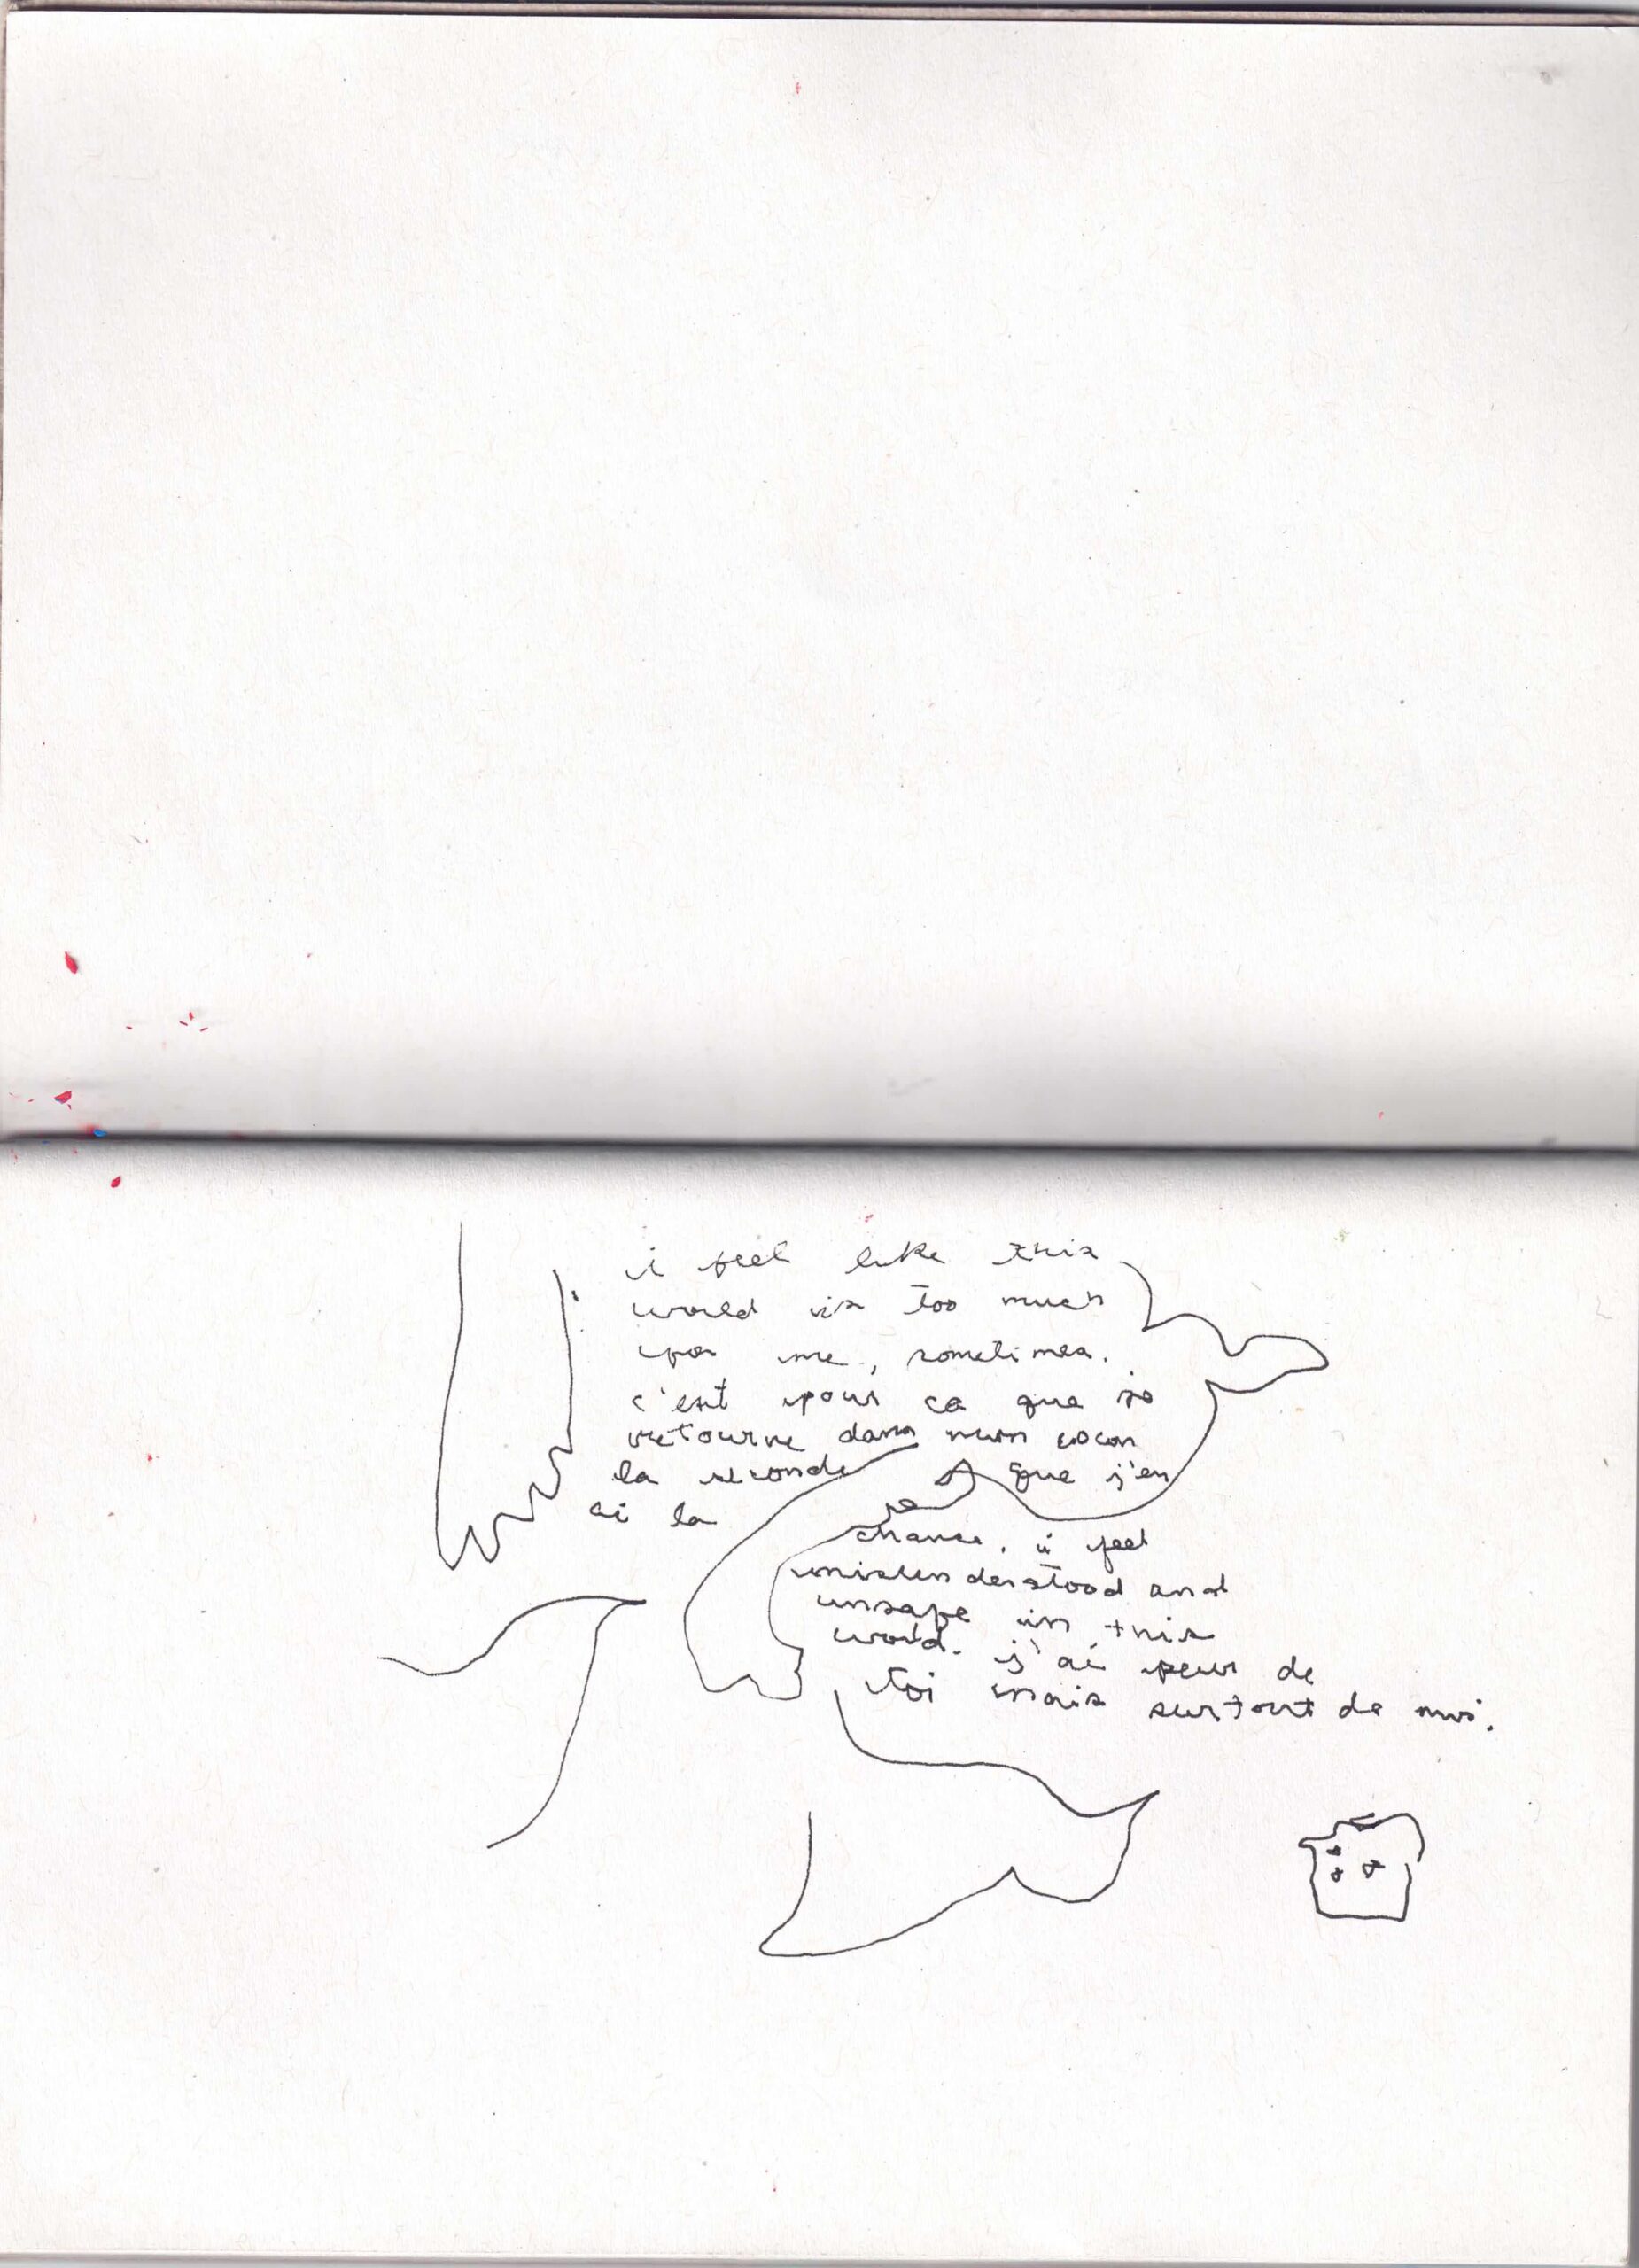 i feel like this
world is too much
for me, sometimes.
c'est pour ca que je
retourne dans mon cocon
la seconde que j'en
ai la
chance. i feel
misunderstood and
unsafe in this
world. j'ai peur de
toi mais surtout de moi.